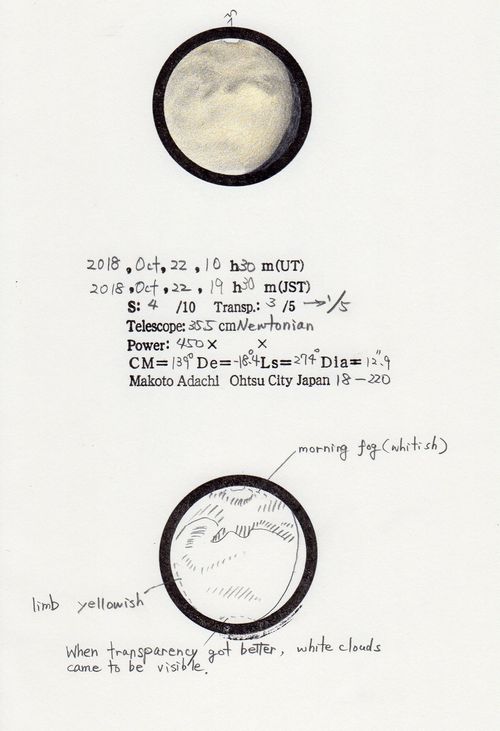 2018, Oct, 22, 10 h30 m(UT)
2018, Oct, 22, 19 h30 m(JST)
S: 4 /10 Transp.: 3 /5 → 1/5
Telescope: 35.5 cm Newtonian
Power: 450 × ×
CM=139° De=-18.4° Ls=274° Dia=12".9
Makoto Adachi Ohtsu City Japan 18-220
morning fog (whitish)
limb yellowish
When transparency got better, white clouds
came to be visible.